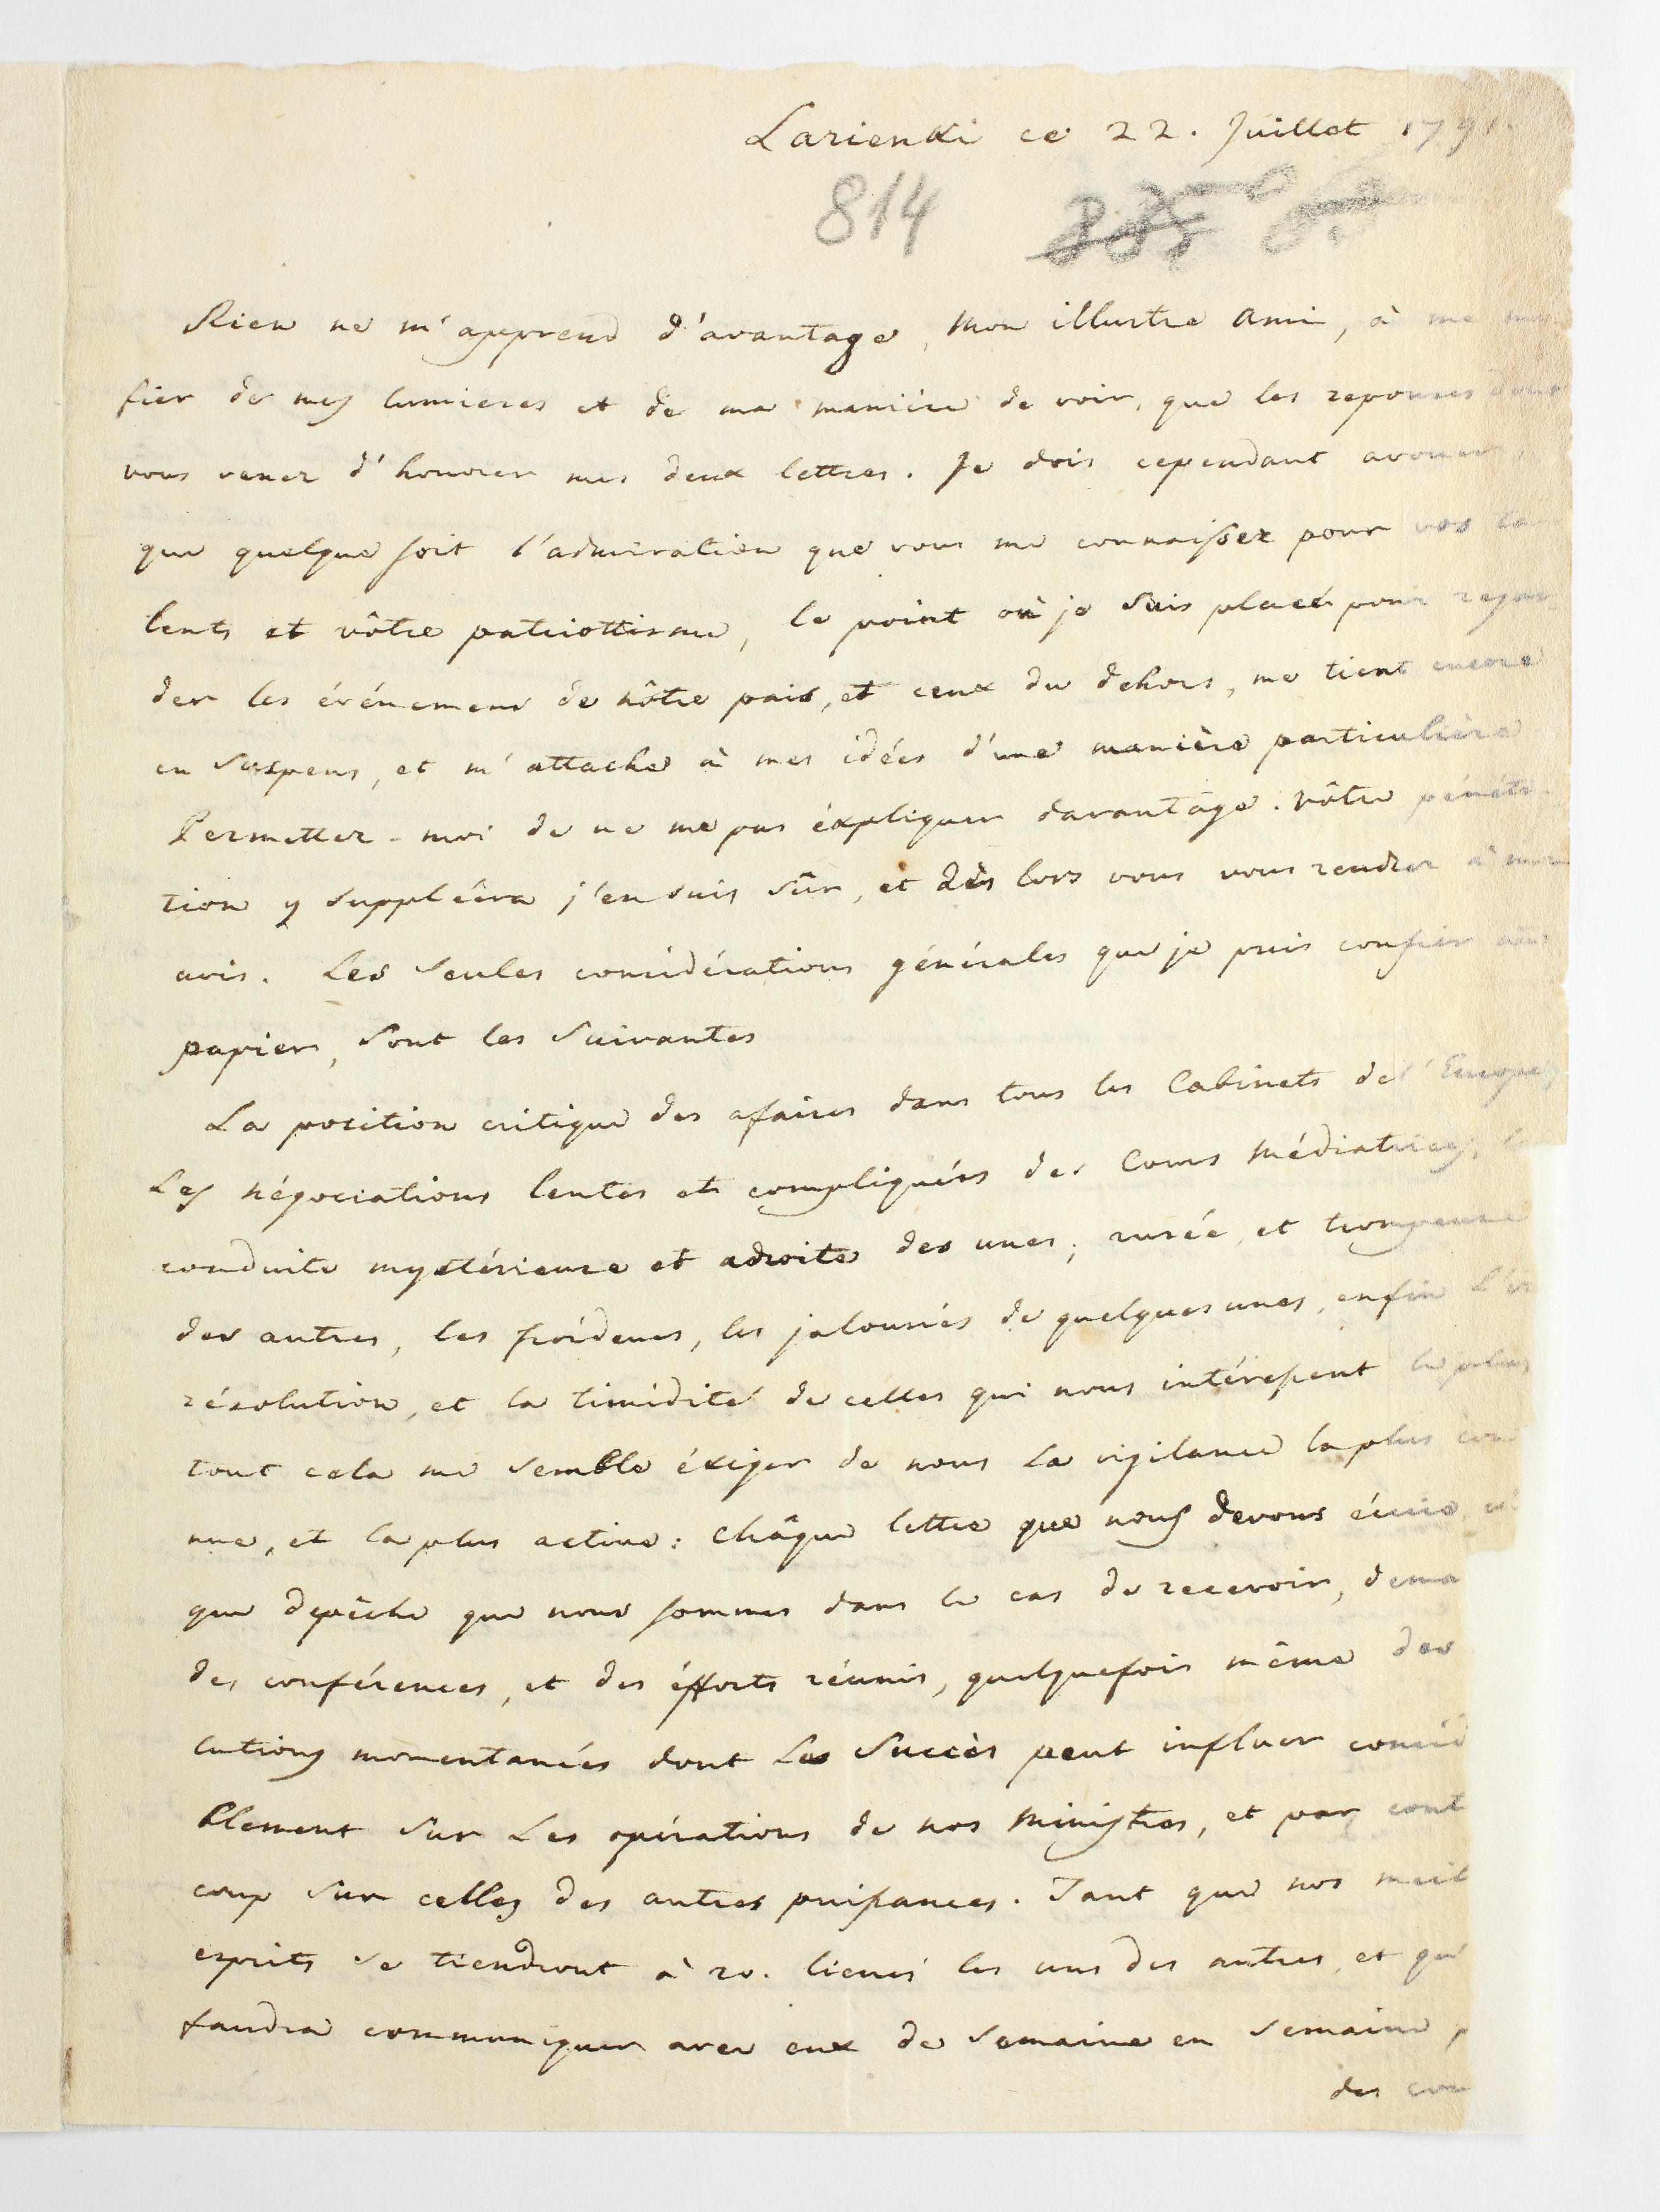 Lazienki ce 22. Juillet 1791.
814
Rien ne m'apprend d'avantage, Mon illustre Ami, à me
fier de mes lumieres et de ma manière de voir, que les reponses dont
vous venez d'honorer mes deux lettres. Je dois cependant avouer,
que quelque soit l'admiration que vous me connaissez pour vos ta
lents et vôtre patriottisme, le point où je suis placé pour regar
der les événemens de nôtre païs, et ceux du dehors, me tient encore
en suspens, et m'attache à mes idées d'une manière particulière
Permettez-moi de ne me pas éxpliquer davantage. Vôtre pénétra
tion y suppléera j'en suis sûr, et dès lors vous vous rendrez à mon
avis. Les seules considérations générales que je puis confier au
papier, sont les suivantes
La position critique des afaires dans tous les Cabinets de l'Europe,
Les négociations lentes et compliquées des Cours Médiatrices, la
conduite mystérieuse et adroite des unes, rusée, et trompeuse
des autres, les froideurs, les jalousies de quelques unes, enfin l'ir
résolution, et la timidité de celles qui nous intéressent le plus
tout cela me semble éxiger de nous la vigilance la plus con
nue, et la plus active: châque lettre que nous devons écrire
que depêche que nous sommes dans le cas de recevoir, dema
des conférences, et des éfforts réunis, quelquefois même des
lutions momentanées dont Les Succès peut influer consid
blement sur Les opérations de nos Ministres, et par cont
coup sur celles des autres puissances. Tant que nos meil
esprits se tiendront à 20. lieues les uns des autres, et qu'
faudra communiquer avec eux de semaine en semaine p
des cou